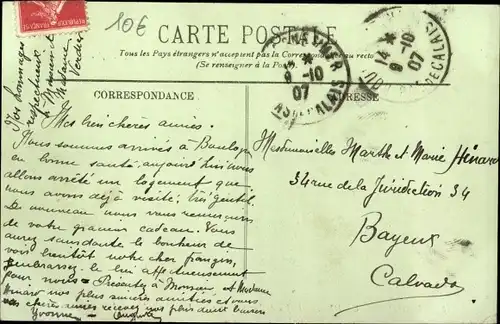 10€
CARTE POSTALE
Tous les Pays étrangers n'acceptent pas la Correspondance au recto
(Se renseigner à la Poste)
9-10
07
PAS-DE-CALAIS
14
9-10
07
PAS DE CALAIS
CORRESPONDANCE
ADRESSE
Nos hommages
respectueux
à Monsieur et
Madame
Verdier
Mes très chères amies.
Nous sommes arrivés à Boulogne
en bonne santé, aujourd'hui nous
allons arrêté un logement que
nous avons déjà visité, très gentil.
De nouveau nous vous remercions
de votre gracieux cadeau. Vous
aurez sans doute le bonheur de
voir bientôt notre cher
embrassez le bien affectueusement
pour nous. Présentez à Monsieur et Madame
Hinard nos plus sincères amitiés et vous
nos chères amies recevez nos plus doux baisers
Yvonne
Mesdemoiselles Marthe et Marie Hinard
34 rue de la Juridiction 34
Bayeux
Calvados